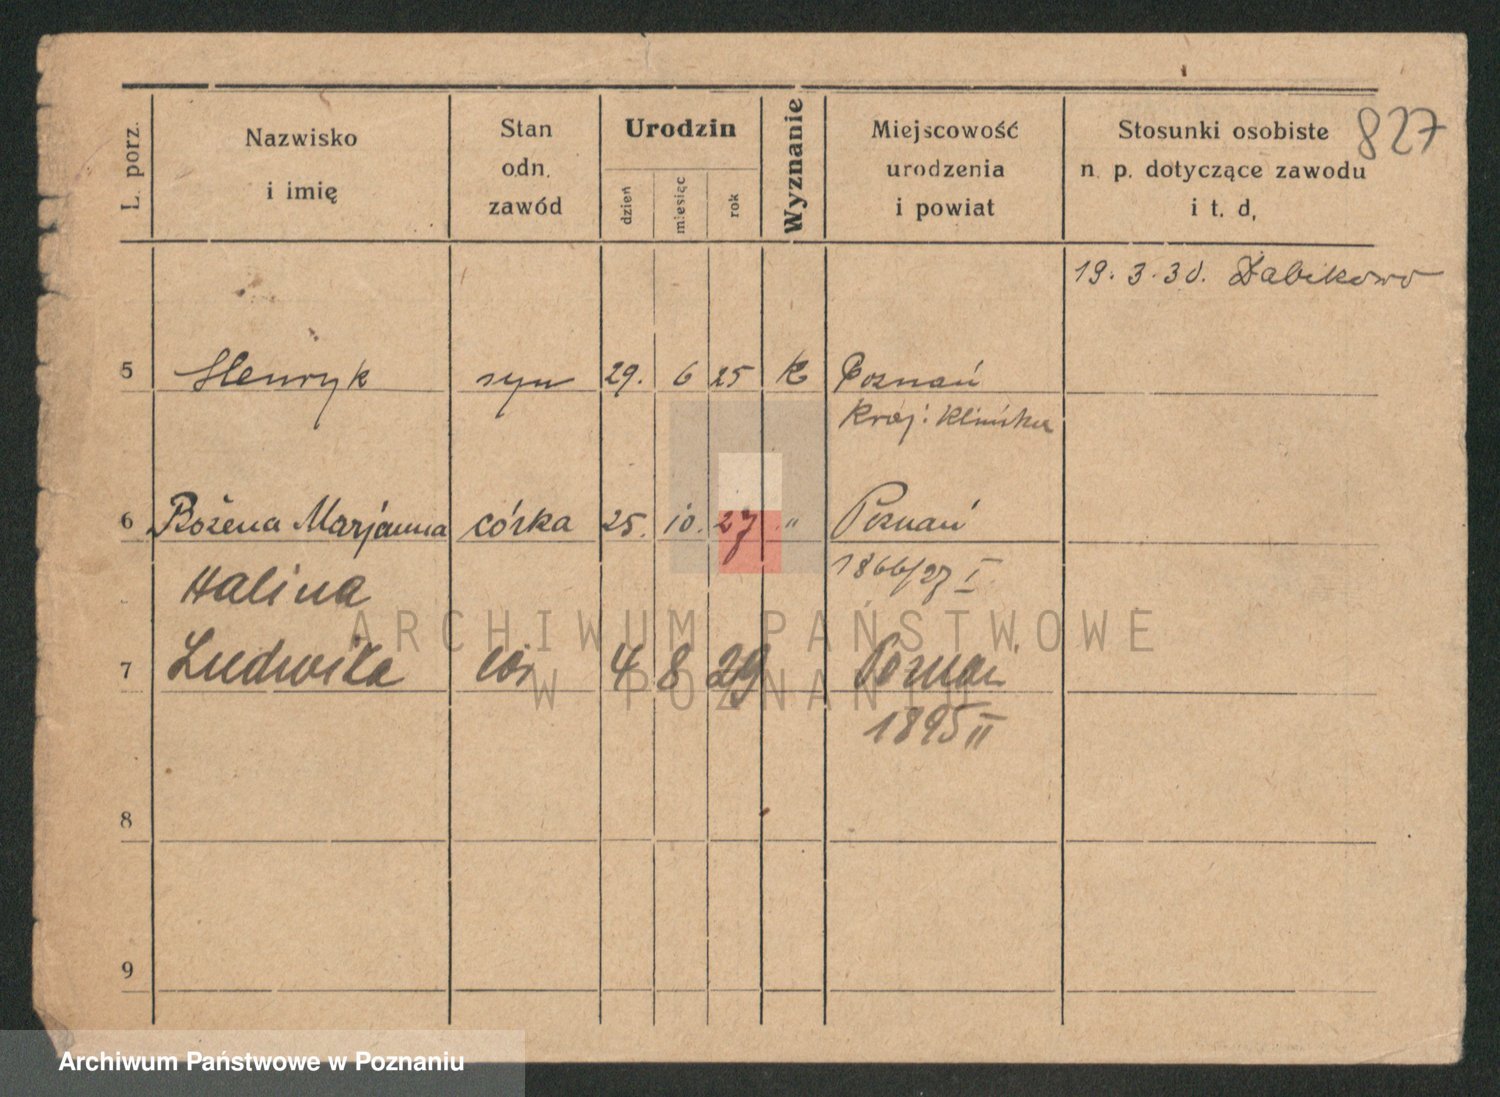 827
L. porz.
Nazwisko
i imię
Stan
odn.
zawód
Urodzin
dzień
miesiąc
rok
Wyznanie
Miejscowość
urodzenia
i powiat
Stosunki osobiste
n. p. dotyczące zawodu
i t. d.
19. 3. 30. Żabikowo
5 Henryk syn 29. 6 25 K Poznań
Kraj: Klinika
6 Bożena Marjanna córka 25. 10. 27 " Poznań
1866/27 I
Halina
7 Ludwika cór 4 8 29 Poznań
1895 II
8
9
ARCHIWUM PAŃSTWOWE
W POZNANIU
Archiwum Państwowe w Poznaniu